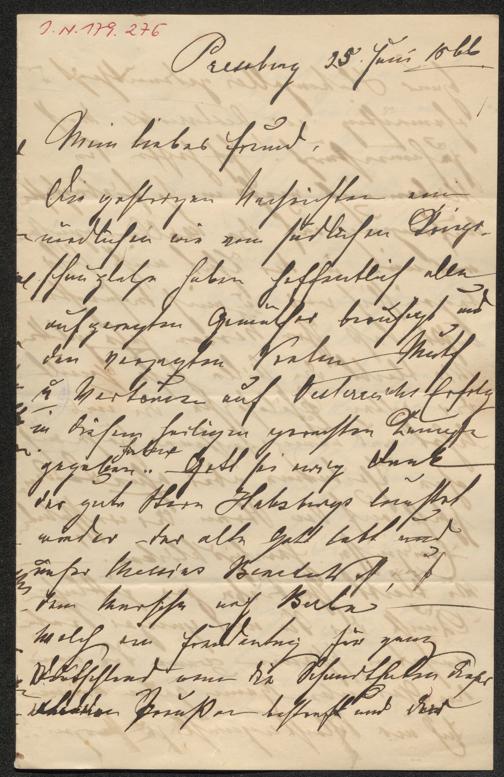 I. N. 179.276
Pressburg 25. Juni 1866
Mein lieber Freund,
Die gestrigen Nachrichten vom
nördlichen wie vom südlichen Kriegs-
schauplatze haben hoffentlich alle
aufgeregten Gemüther beruhigt und
den verzagten Seelen Muth
u Vertrauen auf Oesterreichs Erfolg
in diesem heiligen gerechten Kampfe
gegeben.. Gott sei ewig Dank
der gute Stern Habsburgs leuchtet
wieder - der alte Gott lebt und
unser Messias Benedek ist,
dem Marsche nach Berlin
Welch ein Freudentag für ganz
Deutschland wenn die Schandthaten
Preußen bestraft und